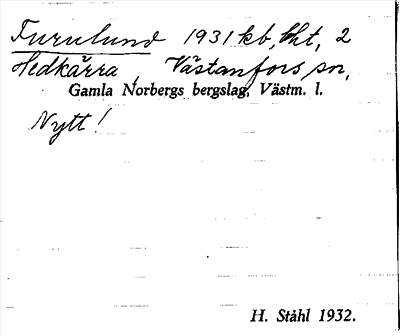 Furulund 1931 kb, bht, 2
Hedkärra, Västanfors sn,
Gamla Norbergs bergslag, Västm. l.
Nytt!
H. Ståhl 1932.